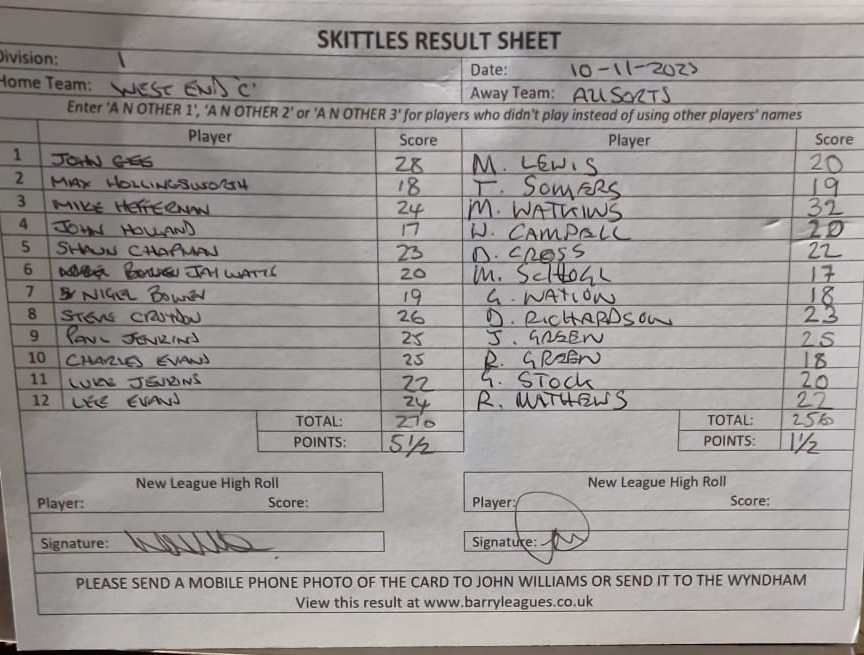 SKITTLES RESULT SHEET
Division: 1 Date: 10-11-2025
Home Team: WEST END 'C' Away Team: ALLSORTS
Enter 'A N OTHER 1', 'A N OTHER 2' or 'A N OTHER 3' for players who didn't play instead of using other players' names
Player Score Player Score
1 JOHN GEE 28 M. LEWIS 20
2 MAX HOLLINGSWORTH 18 T. SOMERS 19
3 MIKE HEFFERNAN 24 M. WATKINS 32
4 JOHN HOLLAND 17 W. CAMPBELL 20
5 SHAUN CHAPMAN 23 D. CROSS 22
6 BOWEN JAY WATTS 20 M. 17
7 NIGEL BOWEN 19 G. NATION 18
8 STEVE CROYDON 26 D. RICHARDSON 23
9 PAUL JENKINS 25 J. GREEN 25
10 CHARLES EVANS 25 R. GREEN 18
11 LUKE JENKINS 22 G. STOCK 20
12 LEE EVANS 24 R. MATHEWS 22
TOTAL: 270 TOTAL: 256
POINTS: 5 1/2 POINTS: 1 1/2
New League High Roll New League High Roll
Player: Score: Player: Score:
Signature: Signature:
PLEASE SEND A MOBILE PHONE PHOTO OF THE CARD TO JOHN WILLIAMS OR SEND IT TO THE WYNDHAM
View this result at www.barryleagues.co.uk